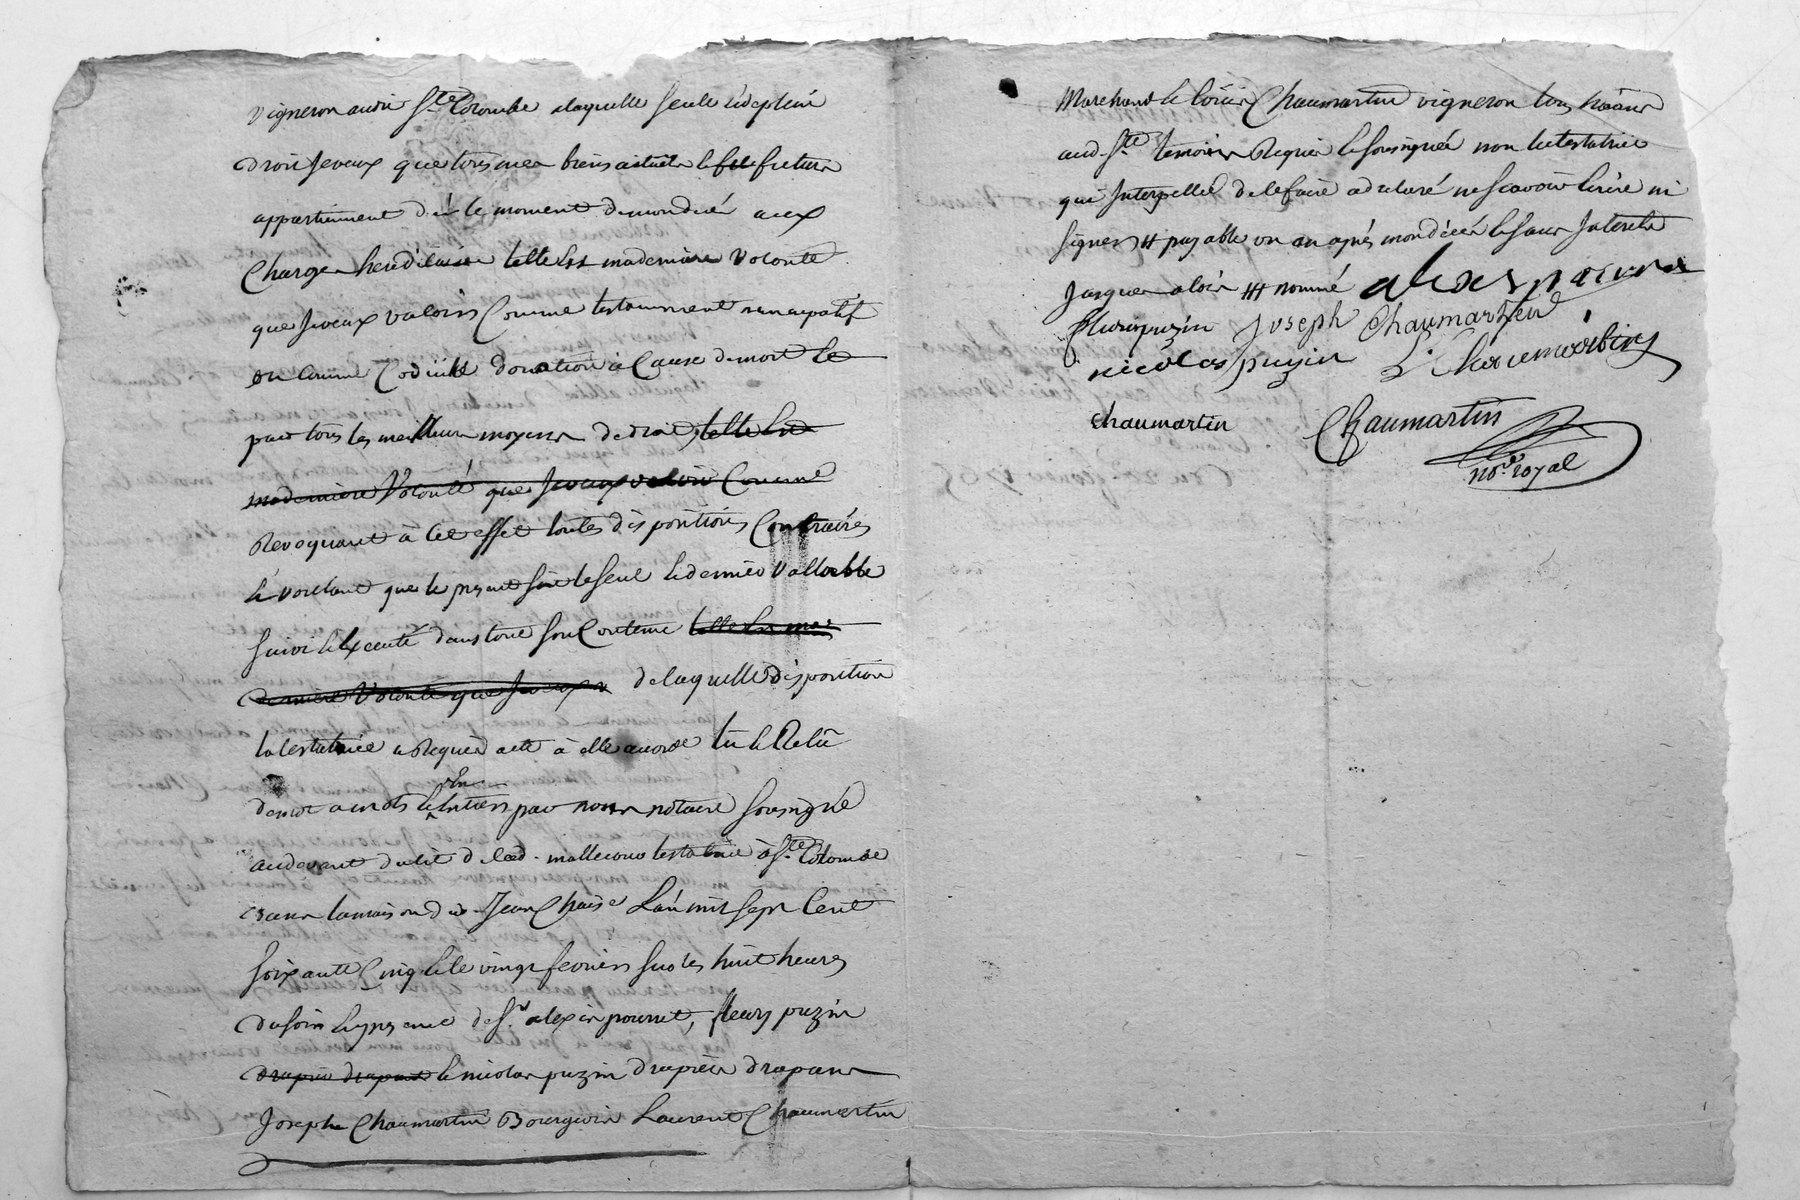 vigneron audit Ste Colombe a laquelle seule et de plein
droit Je veux que tous mes biens actuels et futurs
appartiennent dès le moment de mon decés aux
Charges hereditaires telle Est ma derniere Volonté
que Je veux valoir Comme testamment nuncupatif
ou comme Codicille donation à Cause de mort et
par tous les meilleurs moyens de droit telle Est
ma derniere Volonté que Je veux valoir Comme
Revoquant à cet effet toutes dispositions Contraires
et voulant que le present soit le seul et dernier Vallable
suivi et Executé dans tout son Contenu telle Est ma
derniere Volonté que Je veux de laquelle disposition
la testatrice a Requis acte à elle accordé lu et Relu
de mot a mots et En Entiers par nous notaire soussigné
au devant du lit de lad. testatrice à Ste Colombe
dans la maison dud. Jean Chaise L'an mil sept Cent
soixante Cinq et le vingt fevriers sur les huit heures
du soir En presence de Sr. alexis pourret, fleury puzin
drapier drapant et nicolas puzin drapiers drapans
Joseph Chaumartin Bourgeois Laurent Chaumartin
Marchand et Chaumartin vigneron tous habitans
aud. Ste temoins Requis et soussignés non la testatrice
qui Interpellée de le faire a declaré ne scavoir Ecrire ni
signer # payable un an après mon décés et sans Interets
Jusques alors ## nommé
fleury puzin Joseph Chaumartin
nicolas puzin L. Chaumartin
Chaumartin Chaumartin
nore. royal